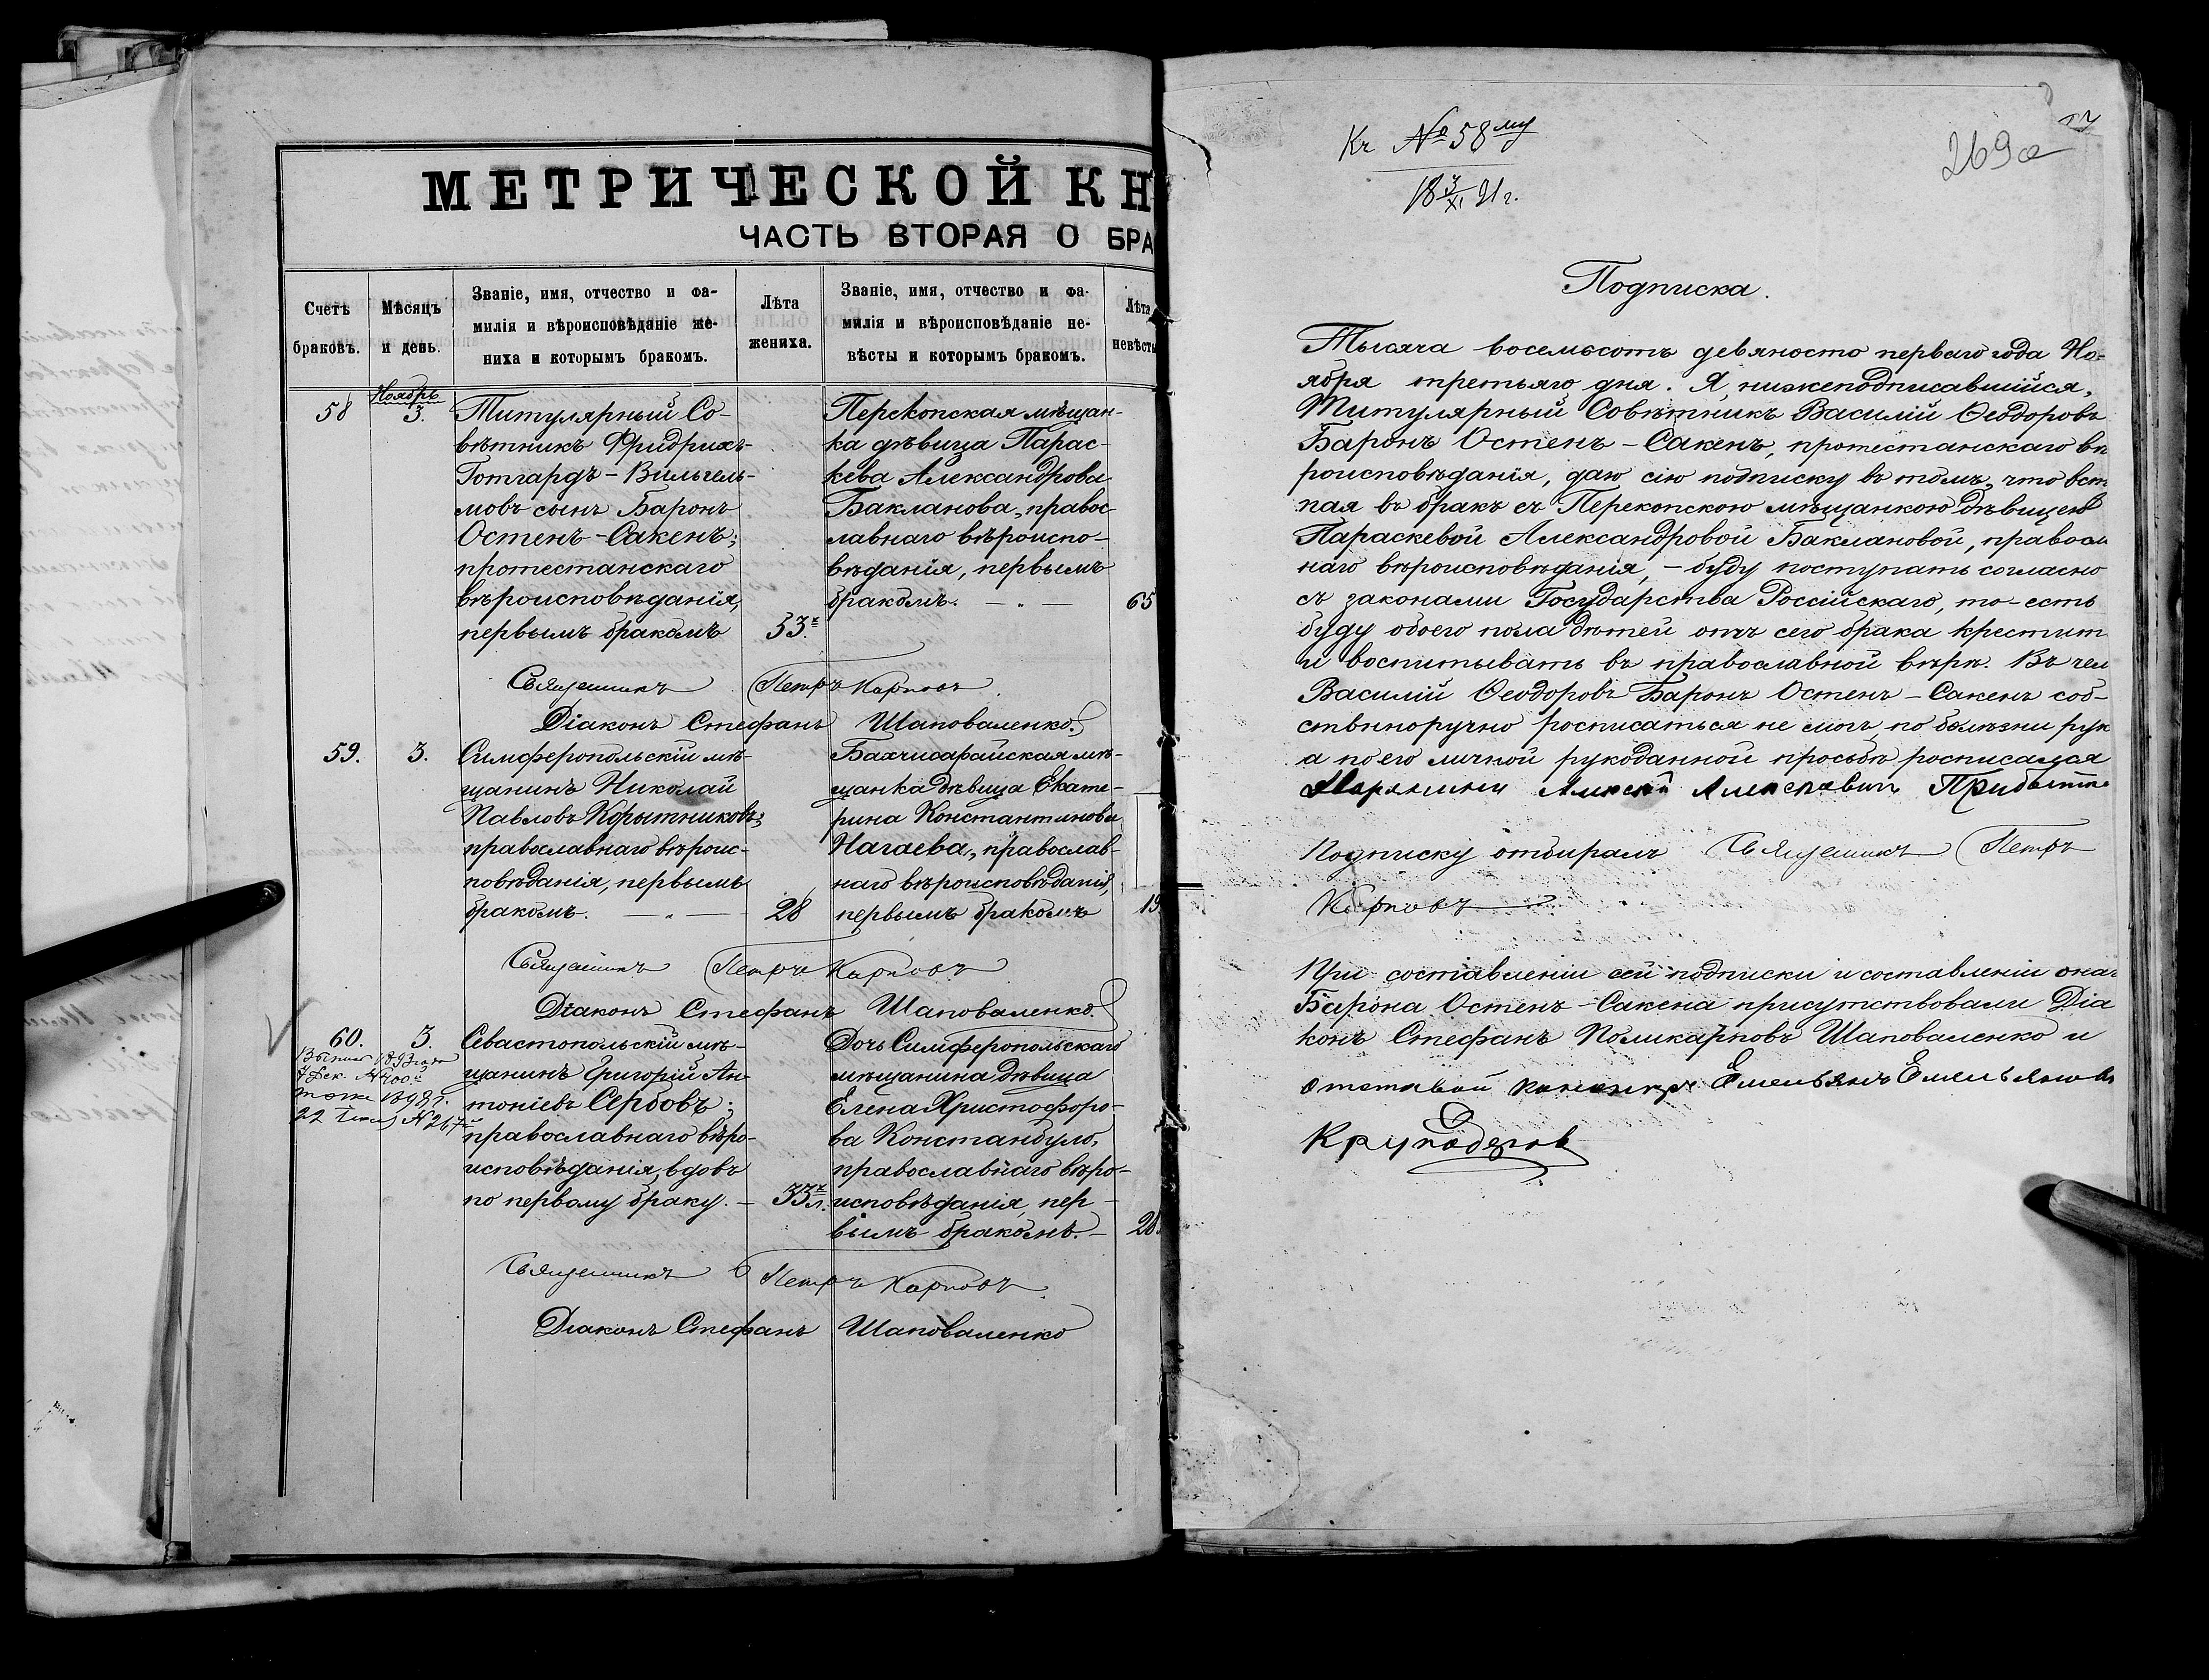 МЕТРИЧЕСКОЙ КН
ЧАСТЬ ВТОРАЯ О БРА
Счетъ браковъ.
Мѣсяцъ и день.
Званіе, имя, отчество и фа-
милія и вѣроисповѣданіе же-
ниха и которымъ бракомъ.
Лѣта жениха.
Званіе, имя, отчество и фа-
милія и вѣроисповѣданіе не-
вѣсты и которымъ бракомъ.
Лѣта невѣсты
Ноябрь
58
3.
Титулярный Со-
вѣтникъ Фридрихъ-
Готгардъ-Вильгель-
мовъ сынъ Баронъ
Остенъ-Сакенъ;
протестанскаго
вѣроисповѣданія,
первымъ бракомъ
53.
Перекопская мѣщан-
ка дѣвица Парас-
кева Александрова
Бакланова, правос-
лавнаго вѣроиспо-
вѣданія, первымъ
бракомъ.
65
Священникъ Петръ Карповъ
Діаконъ Стефанъ Шаповаленко.
59.
3.
Симферопольскій мѣ-
щанинъ Николай
Павловъ Корытниковъ;
православнаго вѣроис-
повѣданія, первымъ
бракомъ.
28
Бахчисарайская мѣ-
щанка дѣвица Екате-
рина Константинова
Нагаева, православ-
наго вѣроисповѣданія,
первымъ бракомъ
19
Священникъ Петръ Карповъ
Діаконъ Стефанъ Шаповаленко.
60.
3.
Севастопольскій мѣ-
щанинъ Григорій Ан-
тоніевъ Сербовъ;
православнаго вѣро-
исповѣданія, вдовъ
по первому браку.
Дочь Симферопольскаго
мѣщанина дѣвица
Елена Христофоро-
ва Констанбуло,
православнаго вѣро-
исповѣданія, пер-
вымъ бракомъ.
28
Священникъ Петръ Карповъ
Діаконъ Стефанъ Шаповаленко
269а
Къ № 58му
18 3/XI 91 г.
Подписка.
Тысяча восемьсотъ девяносто перваго года Но-
ября третьяго дня. Я, нижеподписавшійся,
Титулярный Совѣтникъ Василій Ѳеодоровъ
Баронъ Остенъ-Сакенъ, протестанскаго вѣ
роисповѣданія, даю сію подписку въ томъ, что вст
пая въ бракъ съ Перекопскою мѣщанкою дѣвицею
Параскевой Александровой Баклановой, правосл
наго вѣроисповѣданія, - буду поступать согласно
съ законами Государства Россійскаго, то-есть
буду обоего пола дѣтей отъ сего брака крестит
и воспитывать въ православной вѣрѣ. Въ чем
Василій Ѳеодоровъ Баронъ Остенъ-Сакенъ соб-
ственноручно росписаться не могъ по болѣзни рук
а по его личной рукоданной просьбѣ росписался
Подписку отбиралъ Священникъ Петръ
Карповъ
При составленіи сей подписки и составленіи она
Барона Остенъ-Сакена присутствовали Діа
конъ Стефанъ Поликарповъ Шаповаленко и
отставой Емельянъ Емельяновъ